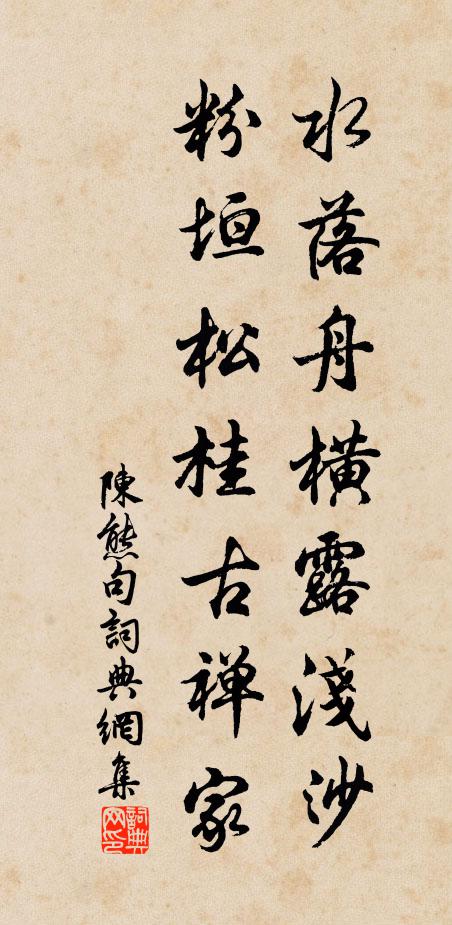 水落舟橫露淺沙
粉垣松桂古禅家
陳熊句詞典網集
詞典网印